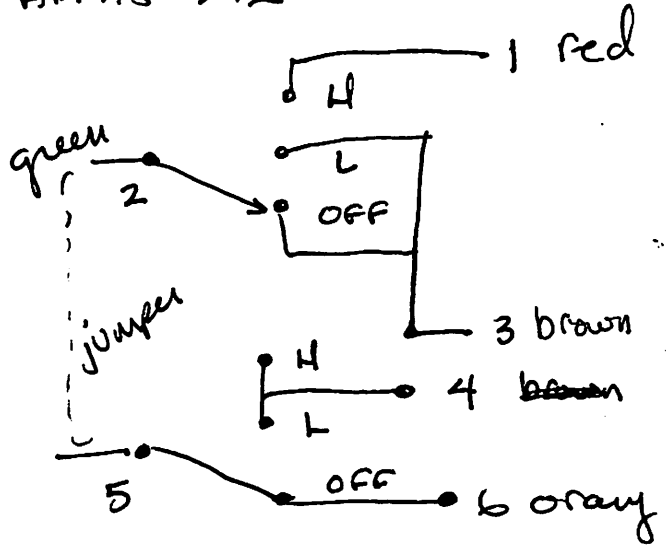 1 red
H
green
L
2
OFF
jumper
3 brown
H
4
L
OFF
5
6 orang